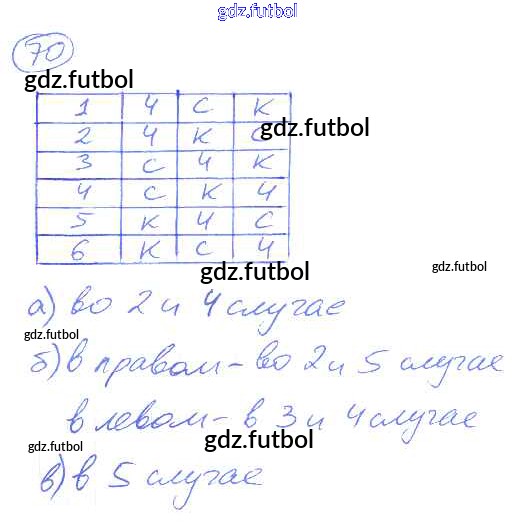 gdz.futbol
70
gdz.futbol
1 Ч С К
2 Ч К С
gdz.futbol
3 С Ч К
4 С К Ч
5 К Ч С
6 К С Ч
gdz.futbol
gdz.futbol
а) во 2 и 4 случае
gdz.futbol
б) в правом - во 2 и 5 случае
в левом - в 3 и 4 случае
gdz.futbol
gdz.futbol
в) в 5 случае
gdz.futbol